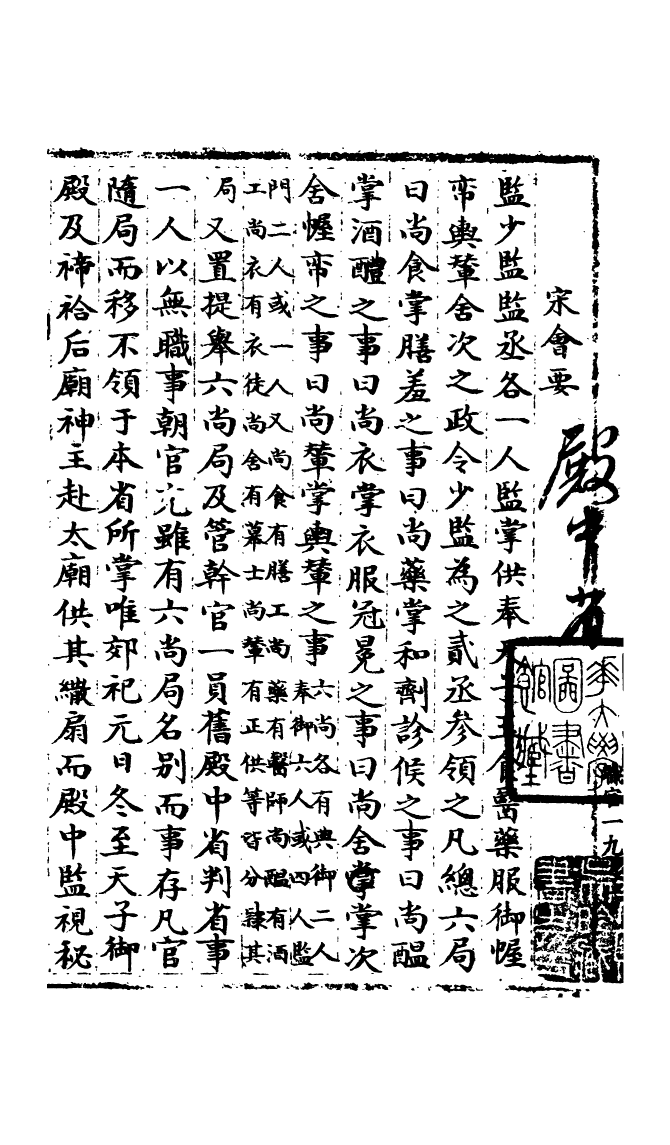 宋會要
殿中省
監少監監丞各一人監掌供奉天子玉食醫藥服御幄
帟輿輦舍次之政令少監為之貳丞參領之凡總六局
曰尚食掌膳羞之事曰尚藥掌和劑診候之事曰尚醞
掌酒醴之事曰尚衣掌衣服冠冕之事曰尚舍掌次
舍幄帟之事曰尚輦掌輿輦之事
六尚各有典御二人
奉御六人或四人監
門二人或一人又尚食有膳工尚藥有醫師尚醞有酒
工尚衣有衣徒尚舍有幕士尚輦有正供等皆分隸其
局又置提舉六尚局及管幹官一員舊殿中省判省事
一人以無職事朝官充雖有六尚局名別而事存凡官
隨局而移不領于本省所掌唯郊祀元日冬至天子御
殿及禘祫后廟神主赴太廟供其繖扇而殿中監視秘
圖書
一九